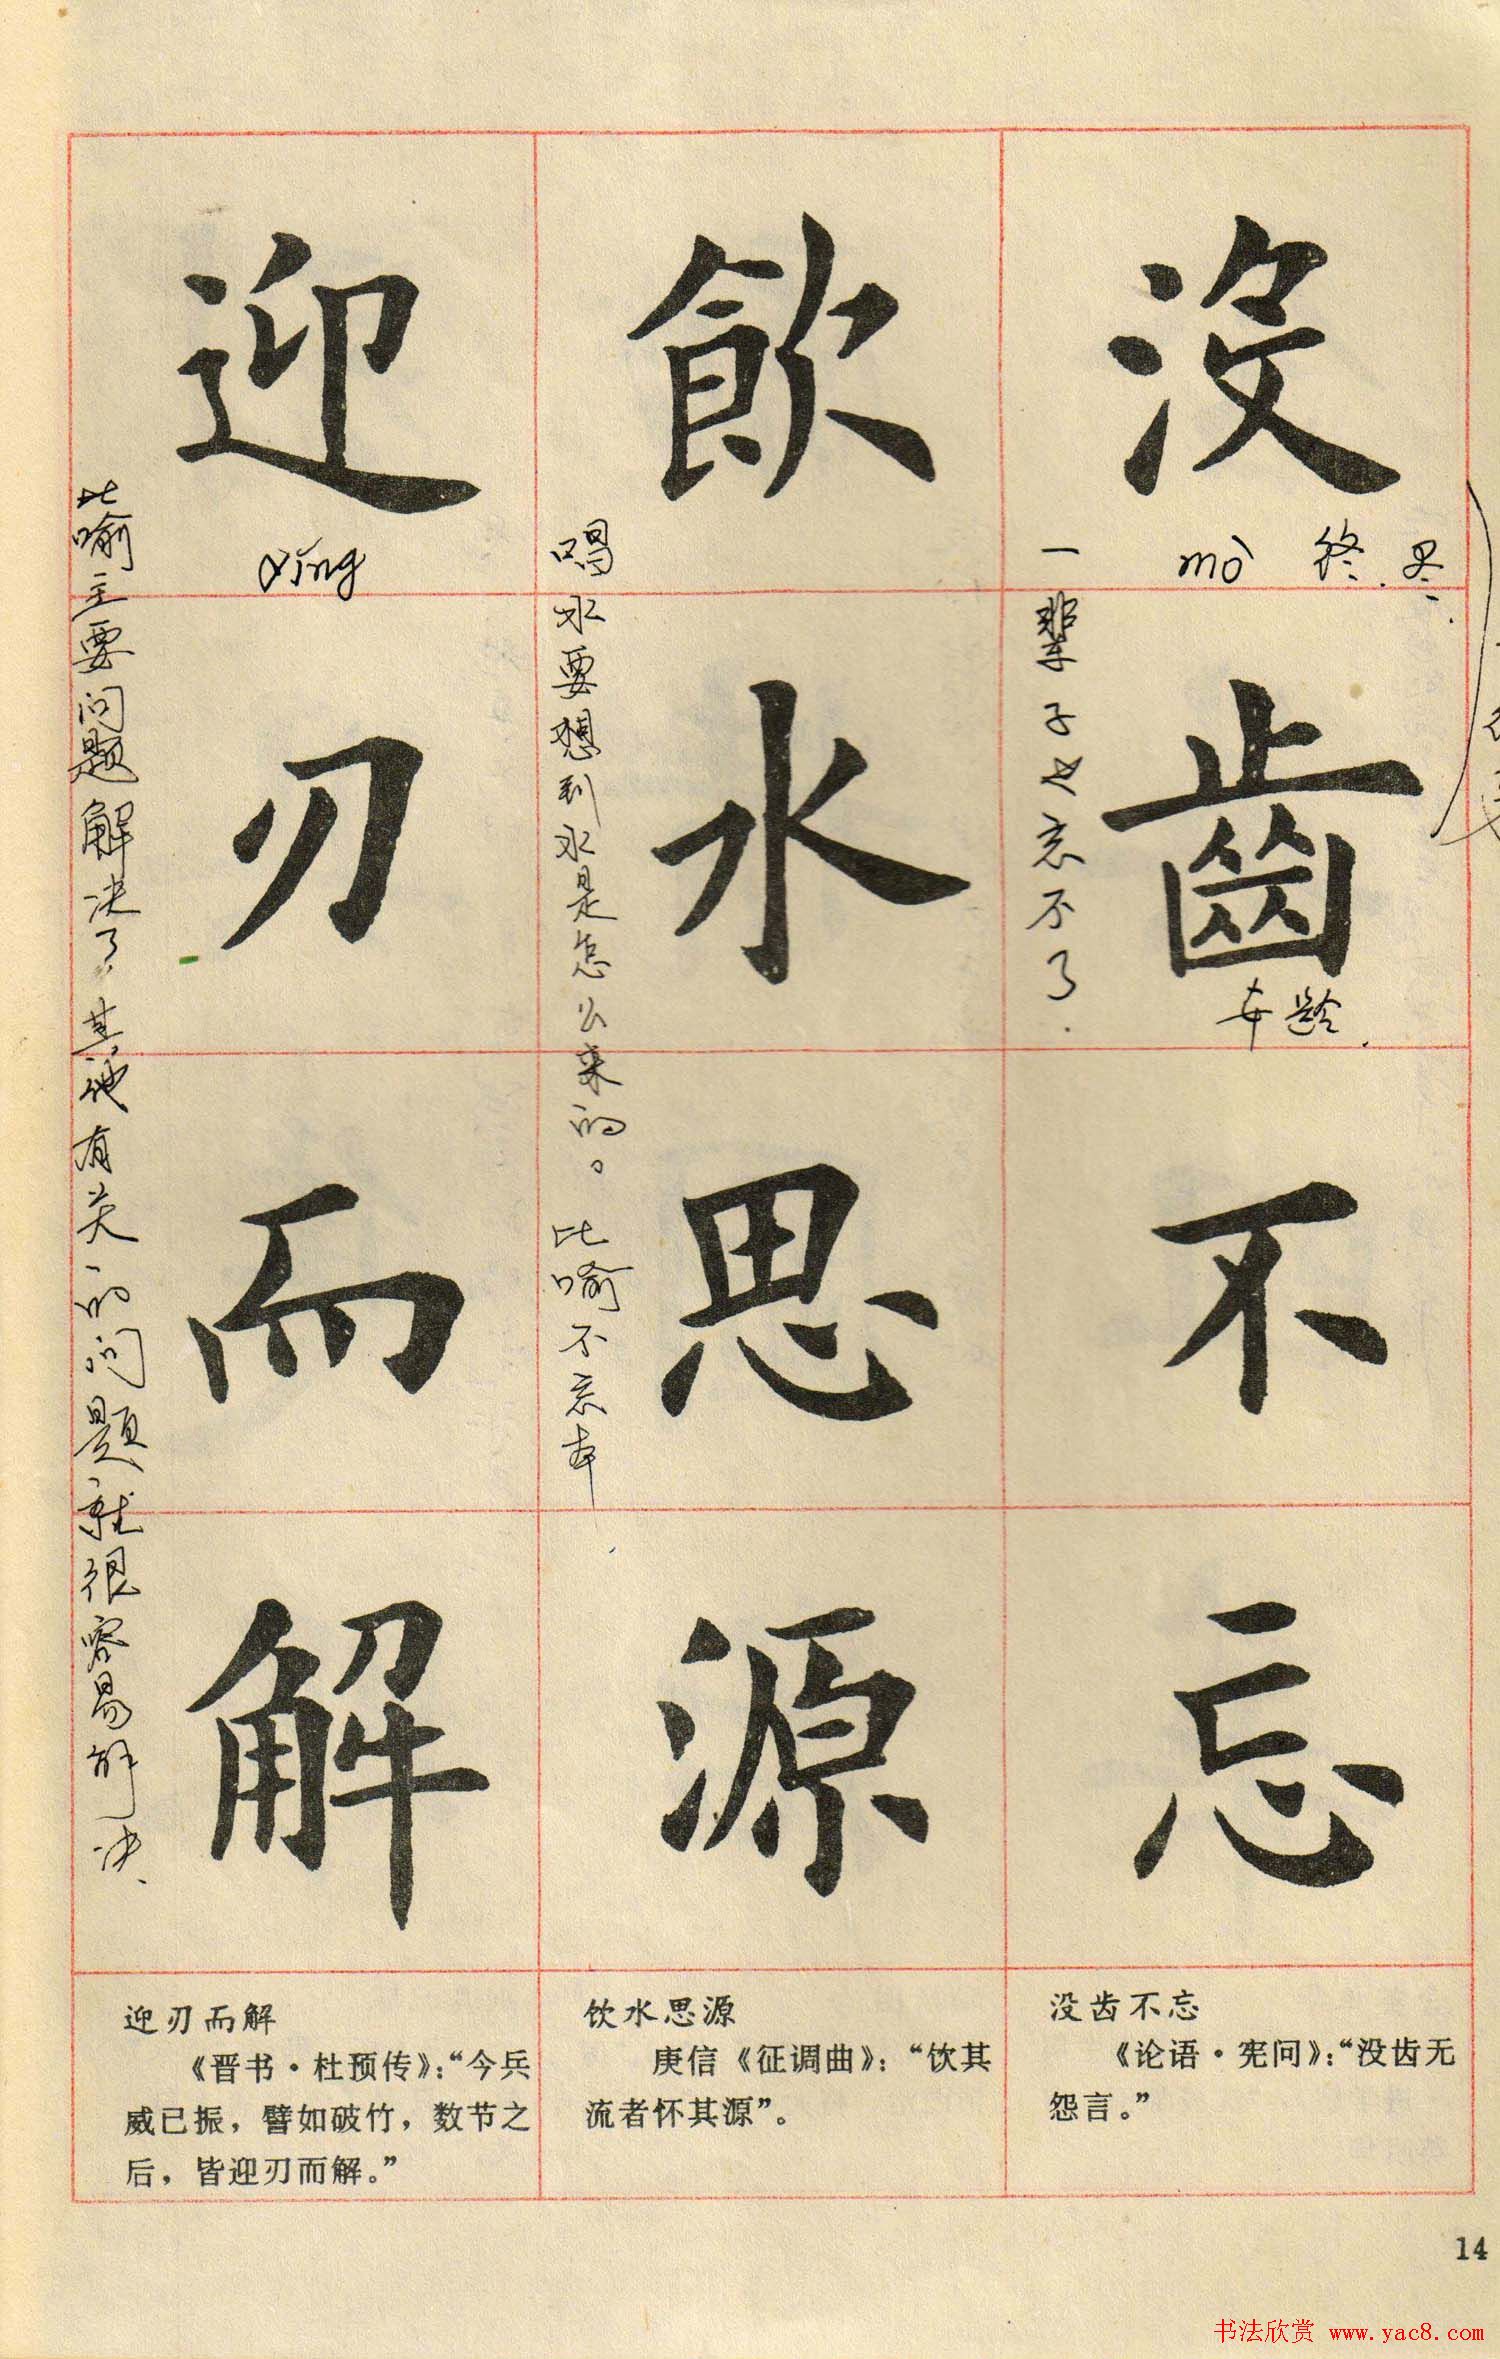 没齒不忘
mò 终.尽.
年龄.
一辈子也忘不了.
飲水思源
喝水要想到水是怎么来的。比喻不忘本
迎刃而解
yíng
比喻主要问题解决了,其他有关的问题就很容易解决.
没齿不忘
《论语·宪问》：“没齿无
怨言。”
饮水思源
庾信《征调曲》：“饮其
流者怀其源”。
迎刃而解
《晋书·杜预传》：“今兵
威已振，譬如破竹，数节之
后，皆迎刃而解。”
14
书法欣赏 www.yac8.com